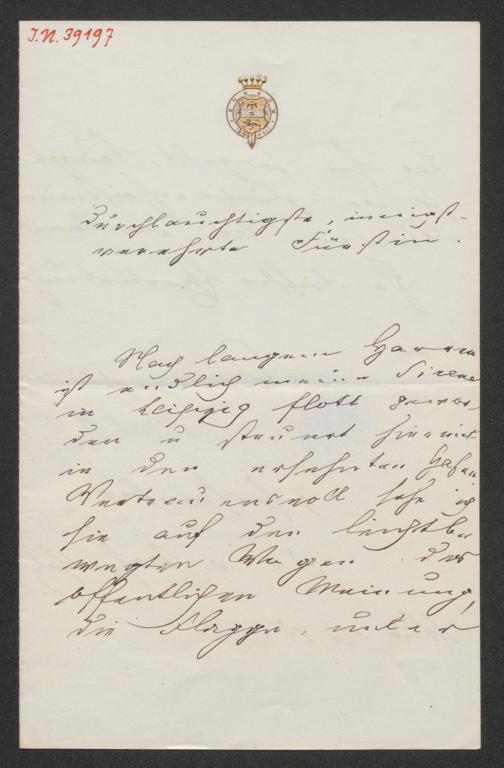 I.N. 39197
Durchlauchtigste, innigst-
verehrte Fürstin.
Nach langem Harren
ist endlich meine Sirene
in Leipzig flott gewor-
den u steuert hiermit
in den ersehnten Hafen
Vertrauensvoll sehe ich
sie auf den leichtbe
wegten Wogen der
öffentlichen Meinung,
die Flagge, unter